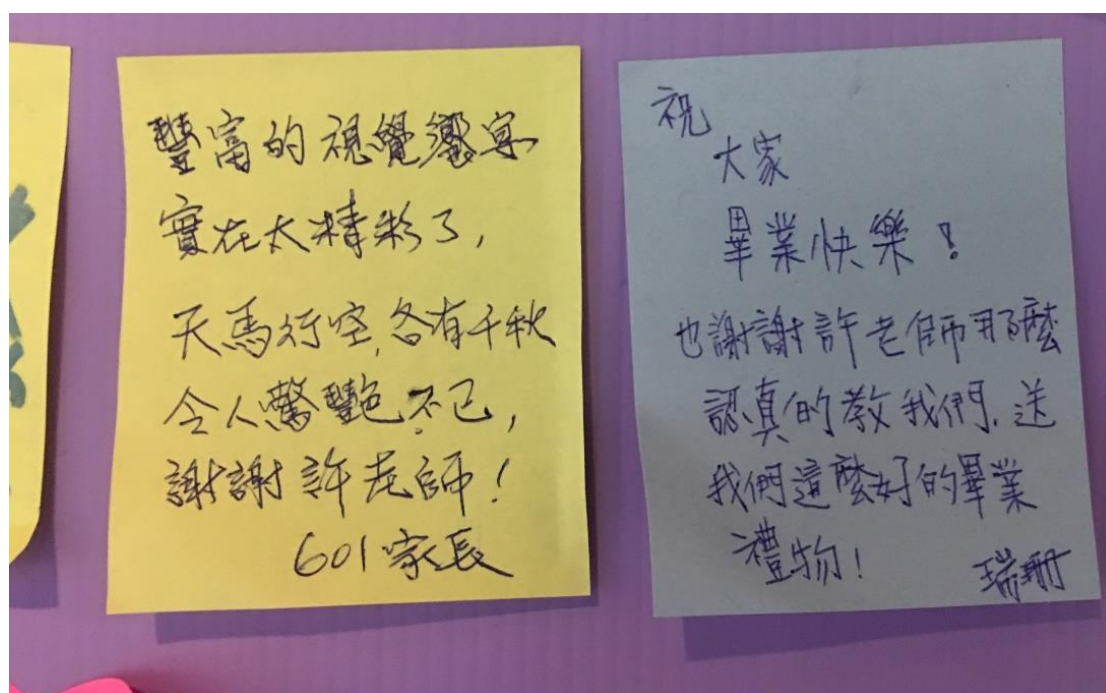 豐富的視覺饗宴
實在太精彩了,
天馬行空,各有千秋
令人驚艷不已,
謝謝許老師!
601家長
祝
大家
畢業快樂!
也謝謝許老師那麼
認真的教我們,送
我們這麼好的畢業
禮物!
瑞珊